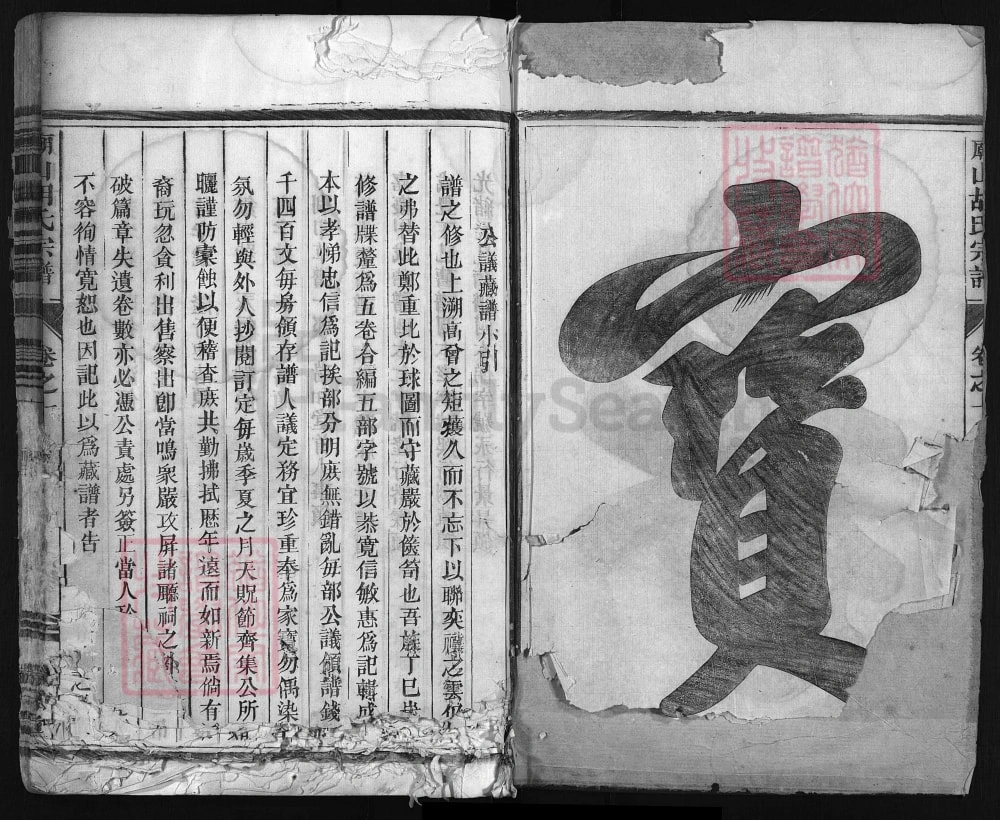 廟山胡氏宗譜
卷之一
寶
公議藏譜小引
譜之修也上溯高曾之矩矱久而不忘下以聯奕禩之雲仍
之弗替此鄭重比於球圖而守藏嚴於篋笥也吾族丁巳歲
修譜牒釐爲五卷合編五部字號以恭寬信敏惠爲記輯成
本以孝悌忠信爲記挨部分明庶無錯亂每部公議領譜錢
千四百文每房領存譜人議定務宜珍重奉爲家寶勿偶染
氛勿輕與外人抄閱訂定每歲季夏之月天貺節齊集公所
曬謹防蠹蝕以便稽查庶共勤拂拭歷年遠而如新焉倘有
裔玩忽貪利出售察出卽當鳴衆嚴攻屏諸廳祠之外
破篇章失遺卷數亦必憑公責處另簽正當人
不容徇情寬恕也因記此以爲藏譜者告
廟山胡氏宗譜
卷之一
FamilySearch